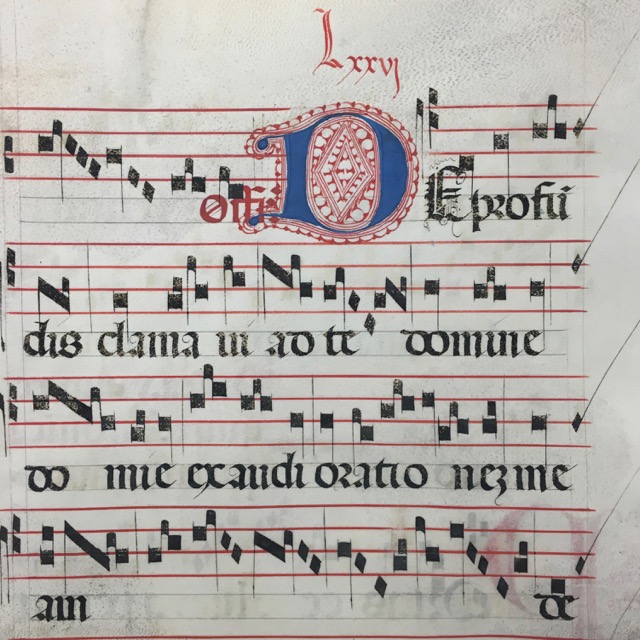 Lxxvj
Offm DE profū
dis clama ui ad te domine
do mie exaudi oratio nez me
am de